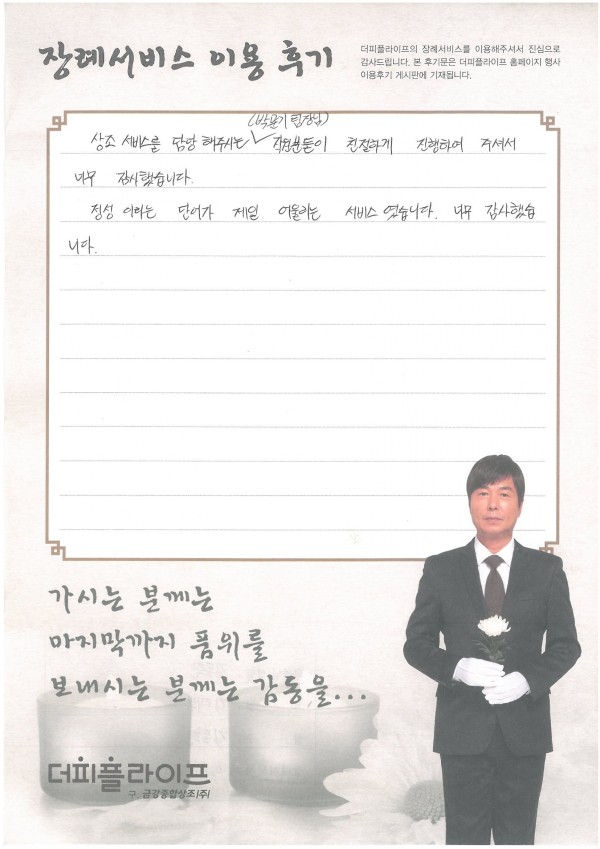 장례서비스 이용 후기
더피플라이프의 장례서비스를 이용해주셔서 진심으로
감사드립니다. 본 후기문은 더피플라이프 홈페이지 행사
이용후기 게시판에 기재됩니다.
(박윤기 팀장님)
상조 서비스를 담당 해주시는 직원분들이 친절하게 진행하여 주셔서
너무 감사했습니다.
정성 이라는 단어가 제일 어울리는 서비스 였습니다. 너무 감사했습
니다.
가시는 분께는
마지막까지 품위를
보내시는 분께는 감동을...
더피플라이프
구. 금강종합상조(주)